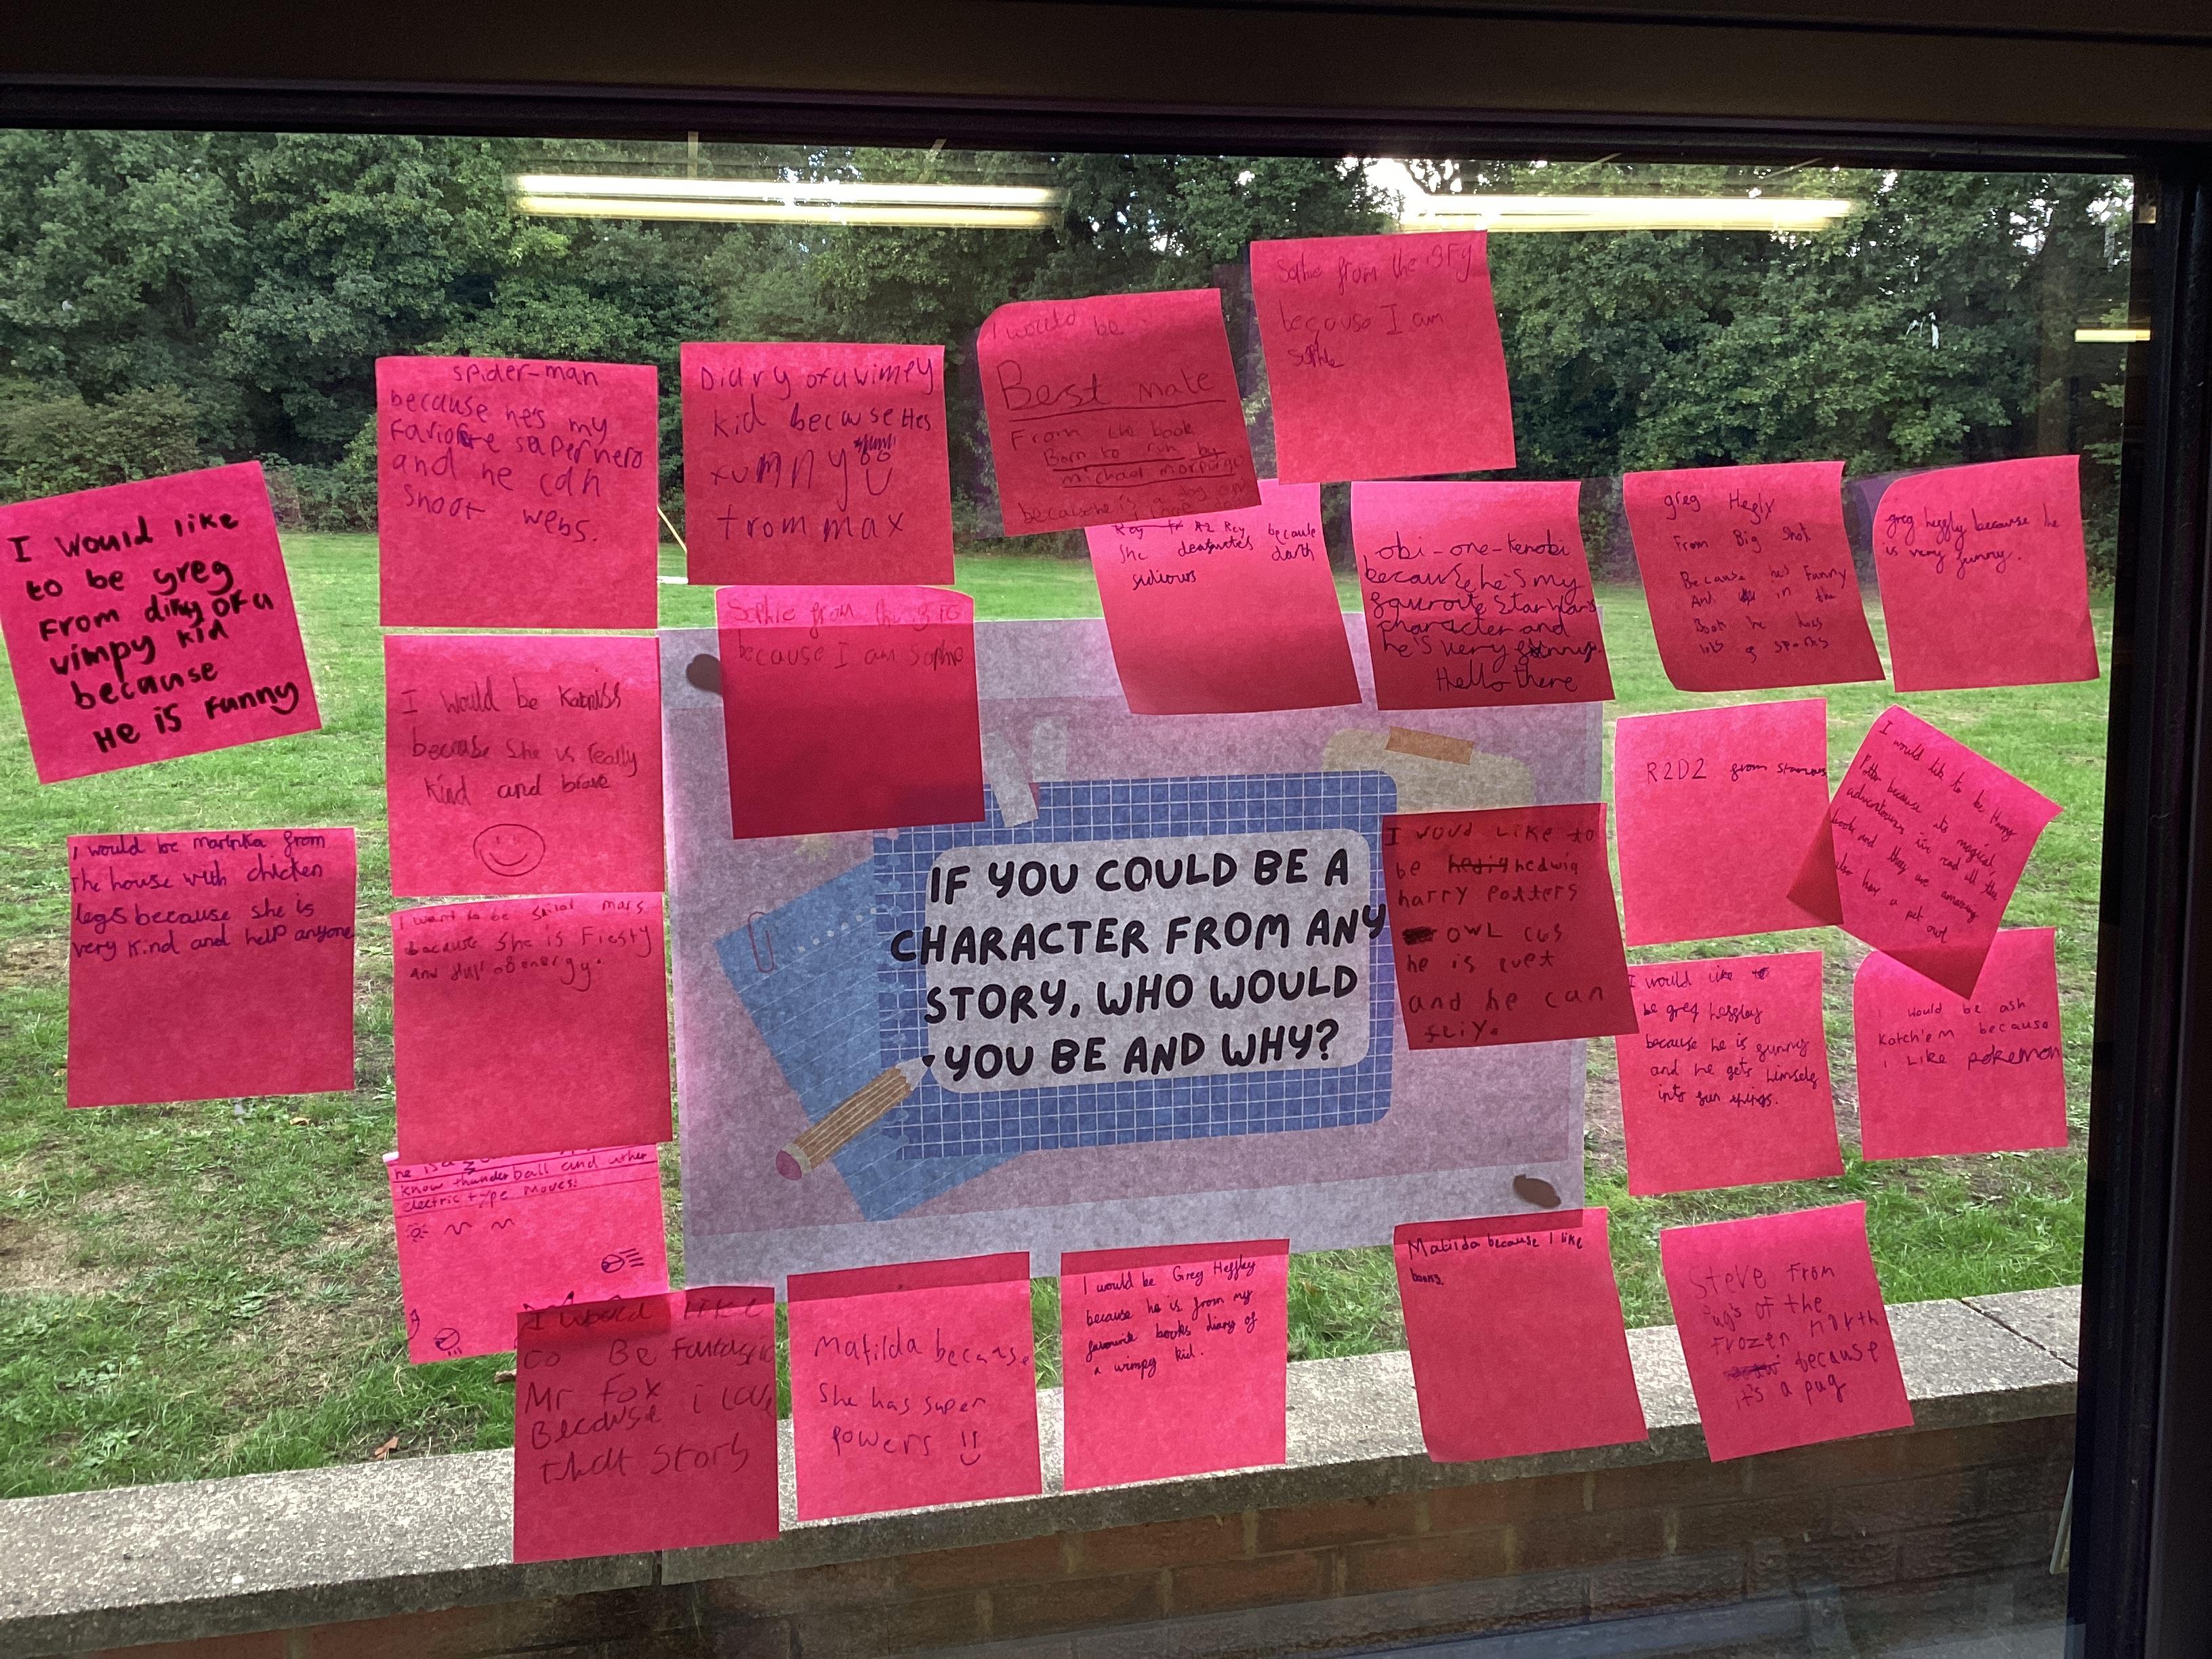 IF YOU COULD BE A
CHARACTER FROM ANY
STORY, WHO WOULD
YOU BE AND WHY?
I would like
to be greg
From diry of a
wimpy kid
because
He is Funny
spider-man
because he's my
and he can
shoot webs.
Diary of a wimpey
kid because Hes
funny
from max
I would be
Best mate
From the book
Born to run by
michael morpurgo
because he is a dog
Sophie from the BFG
because I am
Sophie
I would be Katniss
because she is really
kind and brave
Sophie from the BFG
because I am Sophie
Rey
She because darth
sidious
obi-one-kenobi
because he's my
favroite Star Wars
character and
he's very
Hello there
greg Hegly
From Big Shot
Because he's Funny
And in the
Book he has
lots of sports
greg heggly because he
is very funny.
I would be marinka from
the house with chicken
legs because she is
very kind and help anyone
I want to be mars
because she is Fiesty
and full of energy.
I woud like to
be hedwig
harry Potters
OWL cus
he is
and he can
R2D2 from
I would like to be Harry
Potter because its magical,
adventourus ive read all the
book and they are amazing
also hav a pet owl
I would like to
be greg
because he is gunny
and he gets himself
into
I would be ash
Katch'em because
i Like pokemon
he is a
know thunder ball and other
electric type moves!
I would like
to Be fantastic
Mr Fox
Because i love
that Story
Matilda because
She has super
powers
I would be Greg Heffley
because he is from my
favourite books diary of
a wimpy kid.
Matilda because I like
books.
Steve From
Pugs of the
Frozen north
because
it's a pug